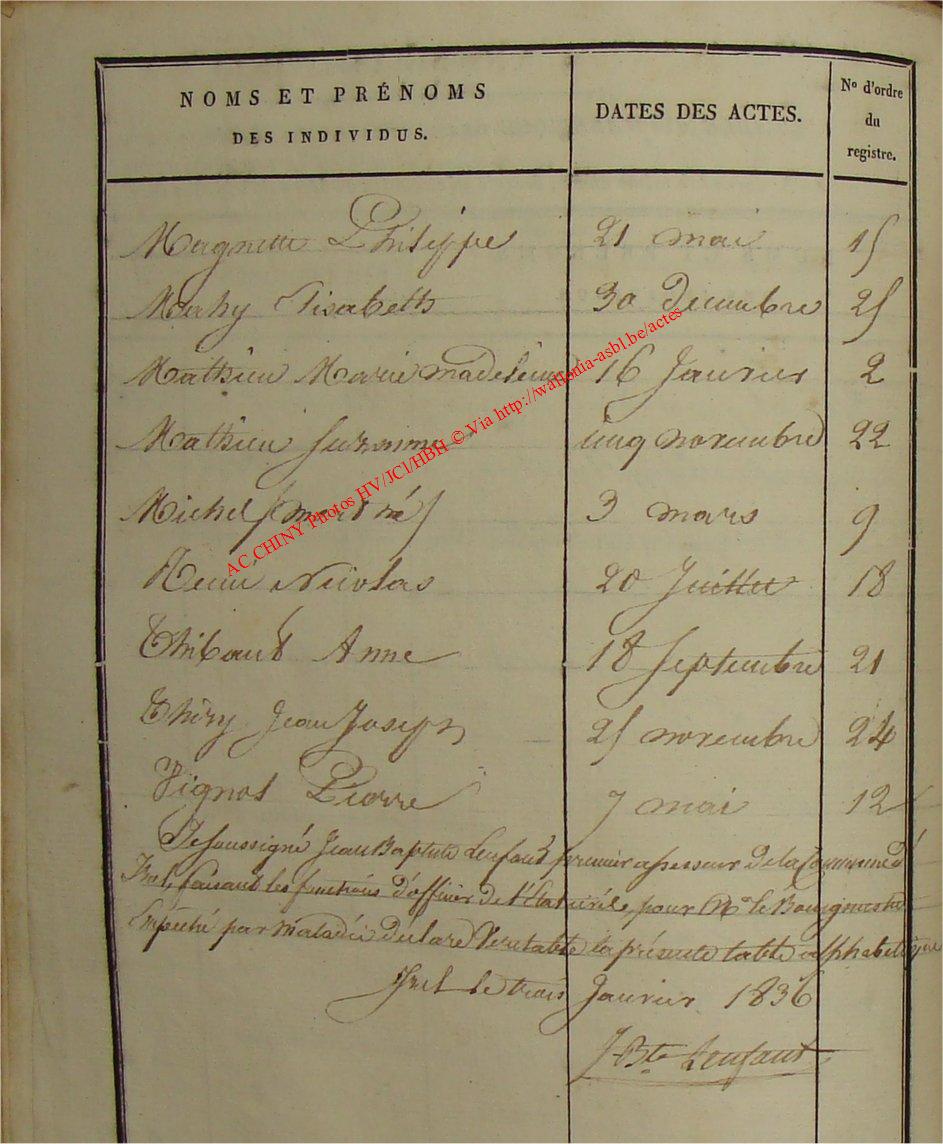 NOMS ET PRÉNOMS
DES INDIVIDUS.
DATES DES ACTES.
No d'ordre
du
registre.
Magnette Philippe 21 mai 15
Marhy Elisabeth 30 Decembre 25
Mathieu Marie madeleine 16 Janvier 2
Mathieu Suzanne cinq novembre 22
Michel (mort né) 3 mars 9
Nicolas 20 Juillet 18
Thibaut Anne 18 Septembre 21
Thiry Jean Joseph 25 novembre 24
Vignol Pierre 7 mai 12
Je soussigné Jean Baptiste Lenfant premier assesseur de la Commune d'
Izel, faisant les fonctions d'officier de l'Etat civil, pour Mr le Bourgmestre
Empêché par maladie déclare Veritable la présente table alphabetique
Izel le trois Janvier 1836
J-Bte Lenfant
AC CHINY Photos HV/JCl/HBH © Via http://wallonia-asbl.be/actes